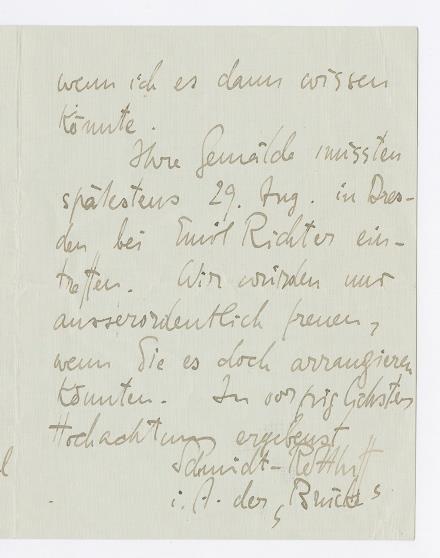 wenn ich es dann wissen
könnte.
Ihre Gemälde müssten
spätestens 29. Aug. in Dres-
den bei Emil Richter ein-
treffen. Wir würden uns
ausserordentlich freuen,
wenn Sie es doch arrangieren
könnten. In vorzüglichster
Hochachtung ergebenst
Schmidt-Rottluff
i. A. der „Brücke“
l